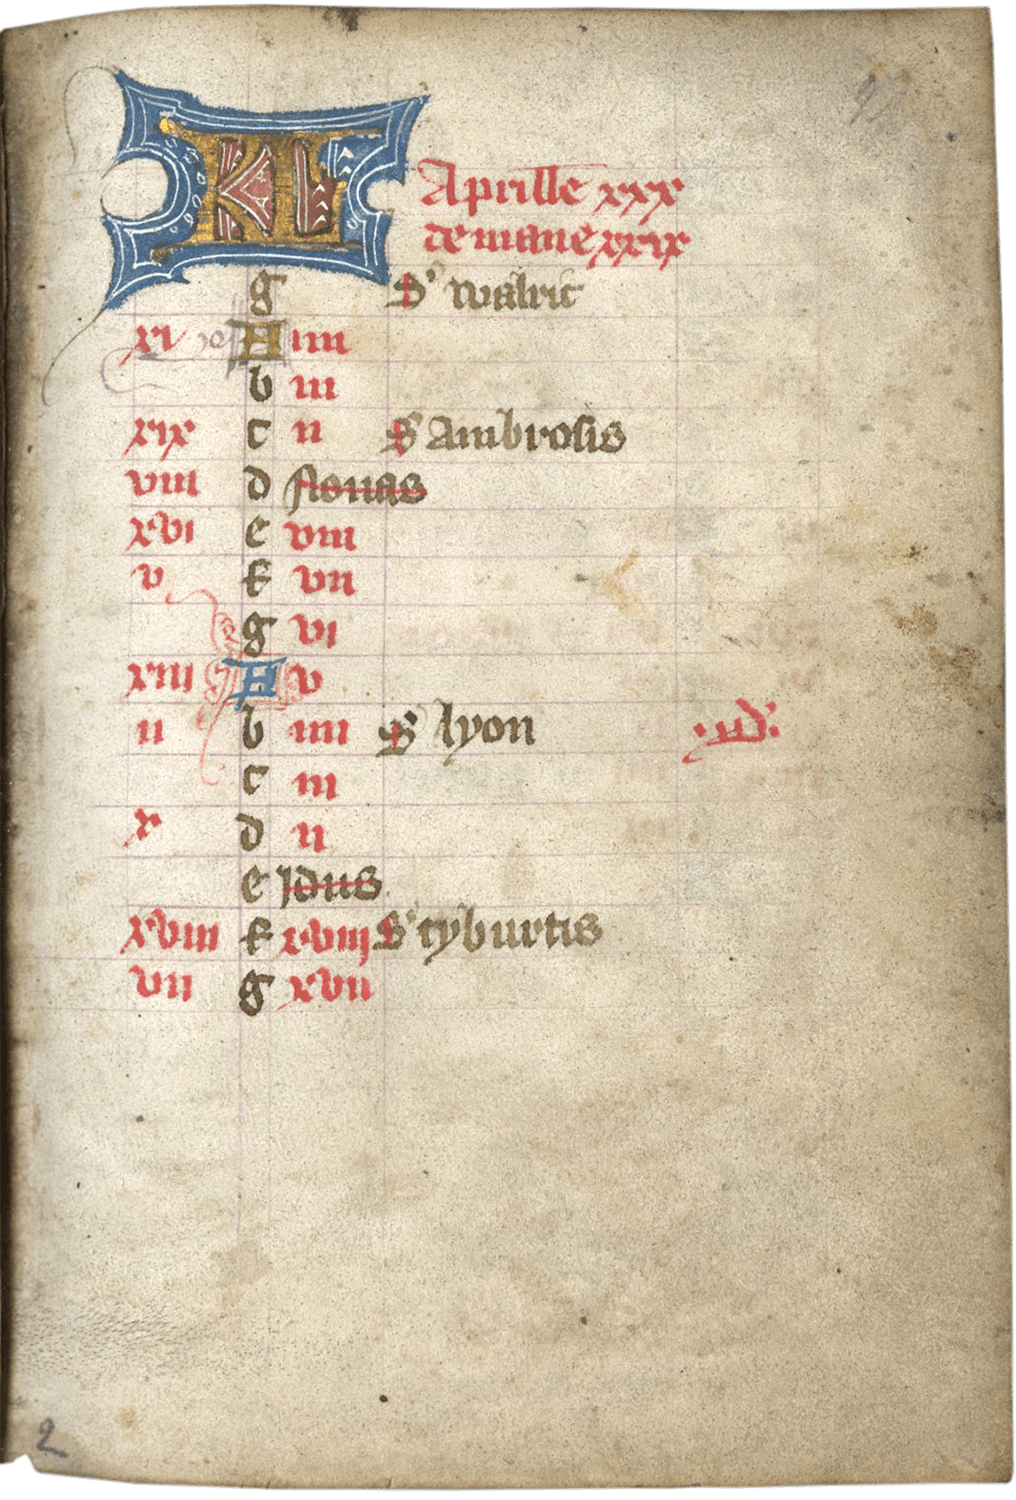 KL Aprille xxx
de mane xxix
g S' walric
xi A iiii
b iii
xix c ii S' Ambrosis
viii d Nonas
xvi e viii
v f vii
g vi
xiii A v
ii b iiii S' lyon
c iii
x d ii
e Idus
xviii f xviij S' tyburtis
vii g xvii
2